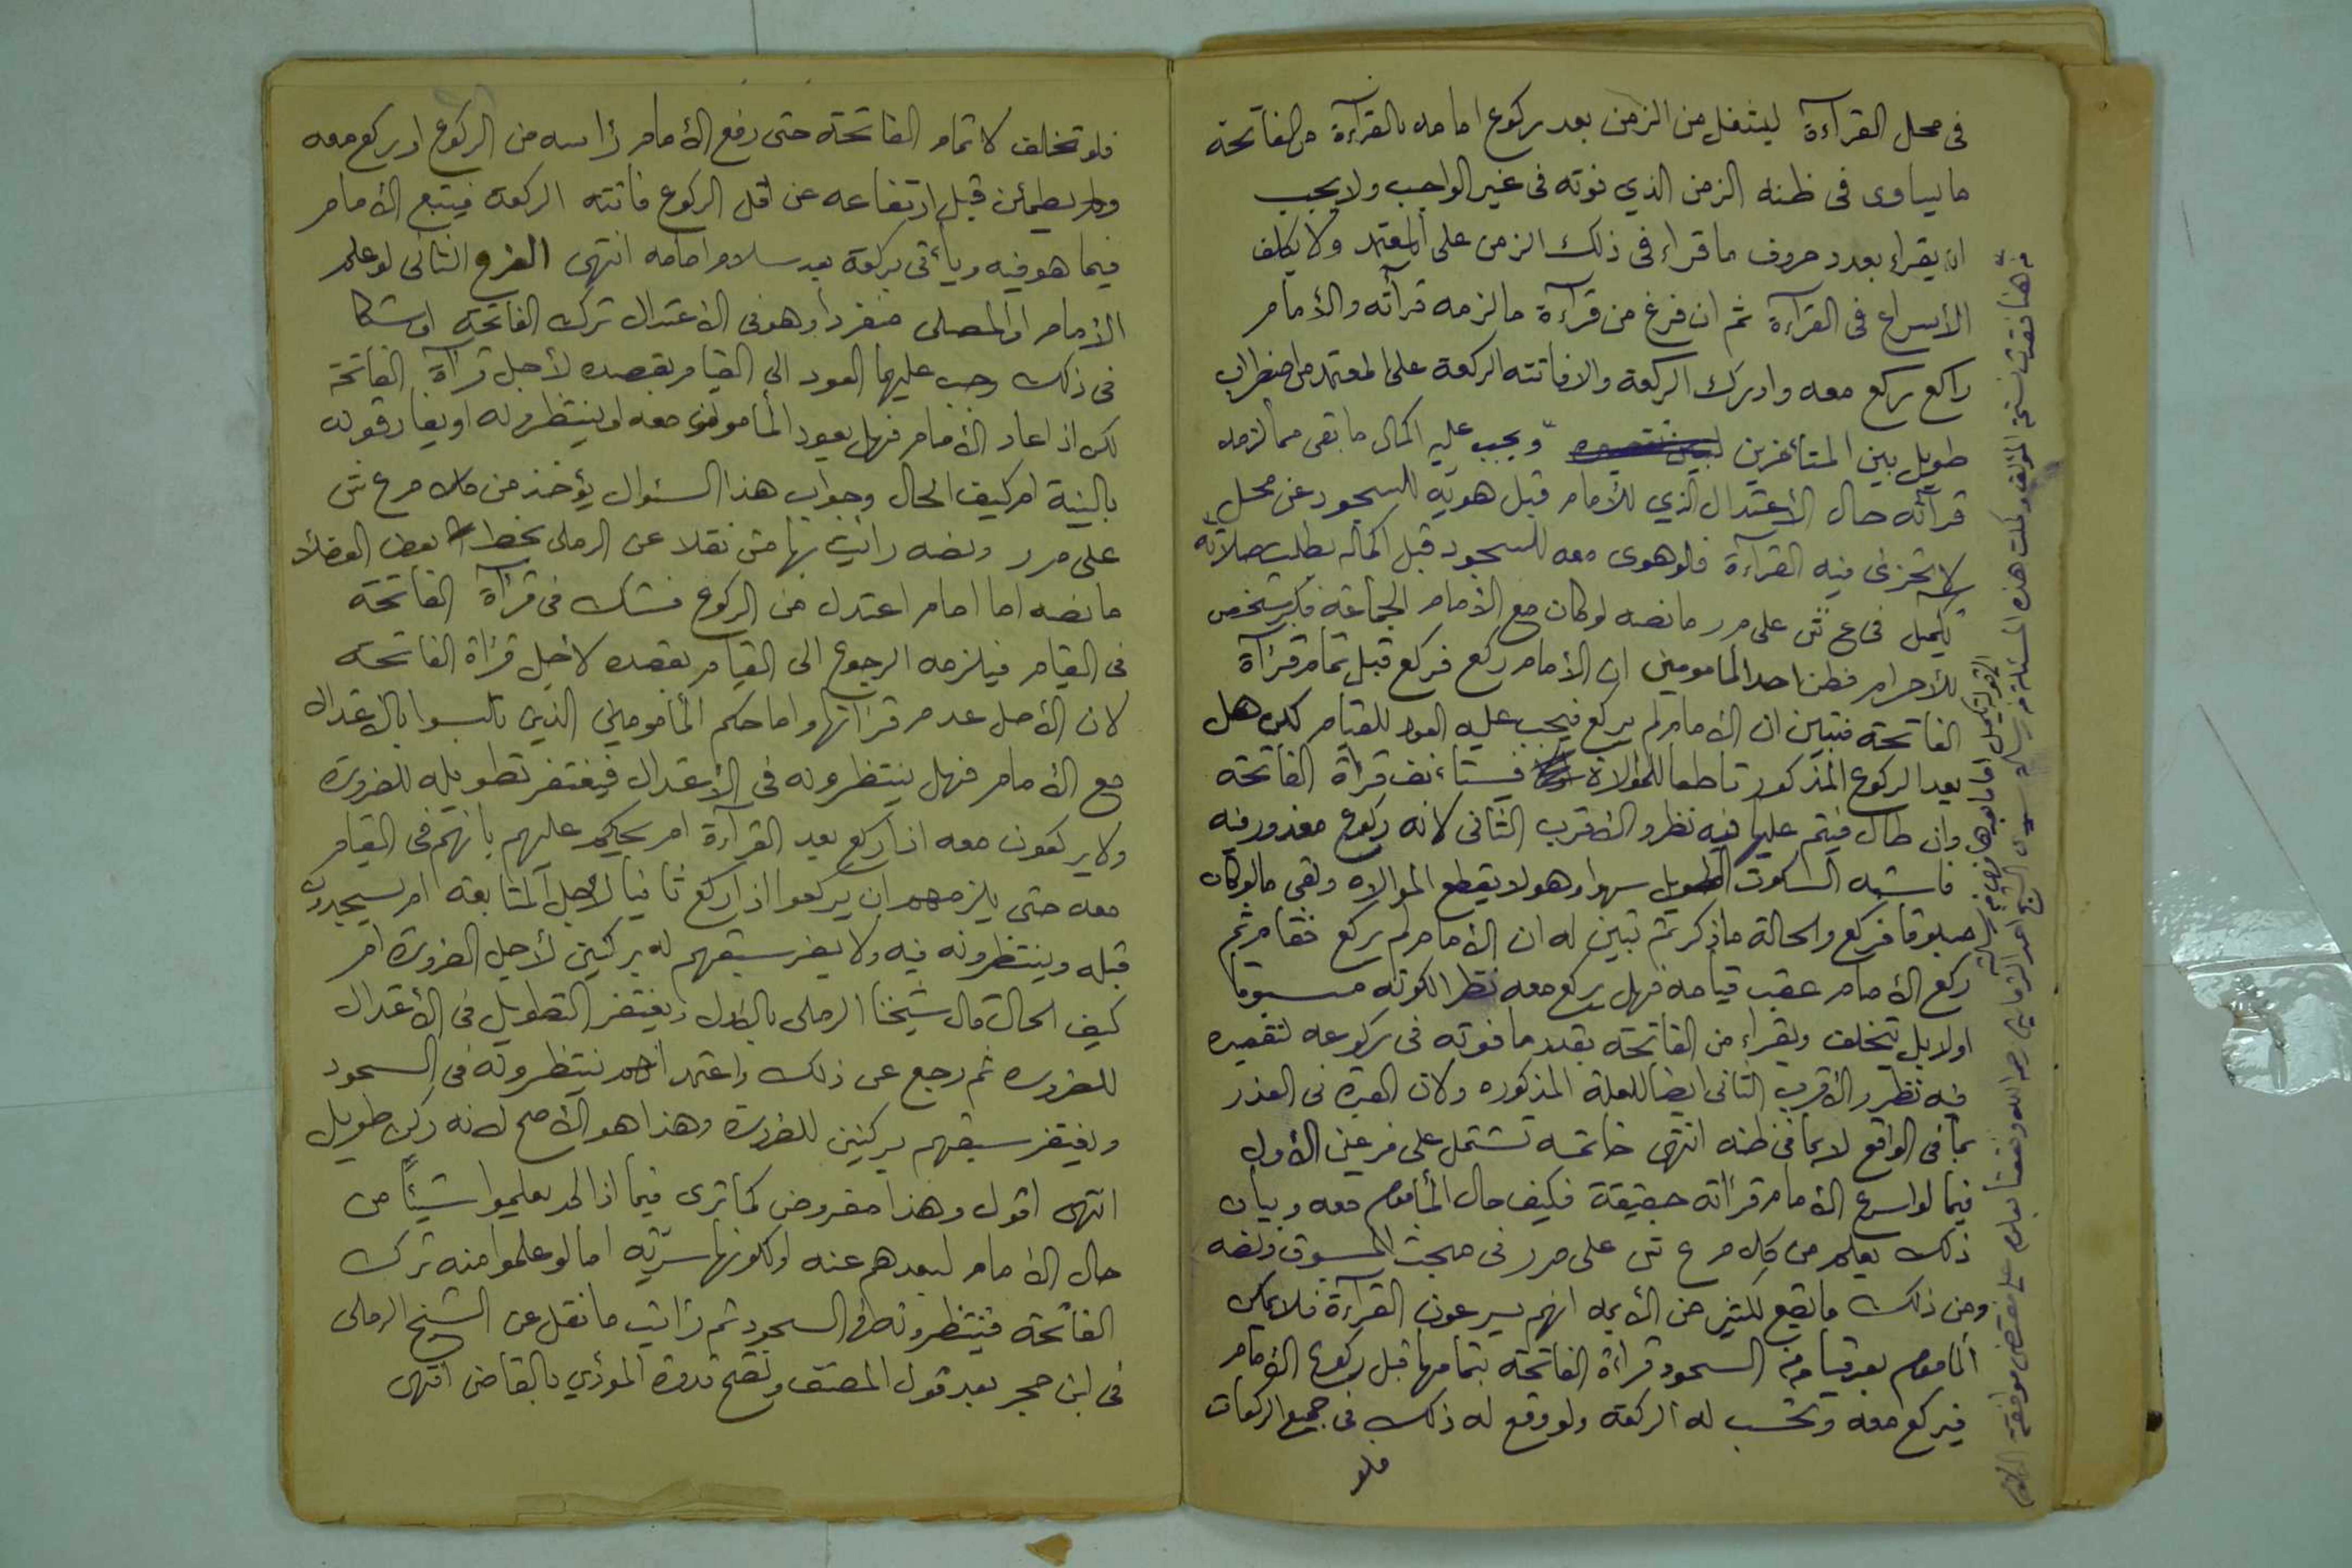 فى محل القرآءة ليشغل من الزمن بعد ركوع امامه بالقرآءة من الفاتحة
ما يساوى فى ظنه الزمن الذي فوته فى غير الواجب ولا يجب
ان يقراء بعدد حروف ما قراء فى ذلك الزمن على المعتمد ولا يكلف
الأسراع فى القرآءة ثم ان فرغ من قرآءة ما لزمه قرآته والأمام
راكع ركع معه وادرك الركعة والا فاتته الركعة على المعتمد من اضطراب
طويل بين المتأخرين ويجب عليه اكمال ما بقى مما لزمه
قرآته حال الأعتدال الذي للأمام قبل هويه للسجود عن محل
لا تجزئ فيه القرآءة فلو هوى معه للسجود قبل اكماله بطلت صلاته
تكميل فى ع ش على م ر ما نصه لو كان مع الأمام الجماعة فكبر شخص
للأحرام فظن احد المأمومين ان الأمام ركع فركع قبل تمام قرآة
الفاتحة فتبين ان الأمام لم يركع فيجب عليه العود للقيام لكن هل
يعد الركوع المذكور قاطعا للموالاة فيستأنف قرآة الفاتحة
وان طال فيتم عليها فيه نظر والأقرب الثانى لانه ركوع معذور فيه
فاشبه السكوت الطويل سهوا وهو لا يقطع الموالاه وبقى ما لو كان
مسبوقا فركع والحالة ما ذكر ثم تبين له ان الأمام لم يركع فقام ثم
ركع الأمام عقب قيامه فهل يركع معه نظرا لكونه مسبوقا
اولا بل يتخلف ويقراء من الفاتحة بقدر ما فوته فى ركوعه لتقصيره
فيه نظر والأقرب الثانى ايضا للعلة المذكوره ولان العبرة فى العذر
بما فى الواقع لا بما فى ظنه انتهى خاتمه تشتمل على فرعين الأول
فيما لو اسرع الأمام قرأته حقيقة فكيف حال المأموم معه وبيان
ذلك يعلم من كلام ع ش على م ر فى مبحث المسبوق ونصه
ومن ذلك ما يقع لكثير من الأيمه انهم يسرعون القرآءة فلا يمكن
المأموم بعد قيامه من السجود قرآءة الفاتحة بتمامها قبل ركوع الأمام
فيركع معه وتحسب له الركعة ولو وقع له ذلك فى جميع الركعات
فلو
من هنا فقدت نسخة المؤلف وكملت هذه المسئلة من رسالة
فلو تخلف لاتمام الفاتحة حتى رفع الأمام رأسه من الركوع او ركع معه
ولم يطمئن قبل ارتفاعه عن اقل الركوع فاتته الركعة فيتبع الأمام
فيما هو فيه ويأتى بركعة بعد سلام امامه انتهى الفرع الثانى لو علم
الأمام او المصلى منفردا وهو فى الأعتدال ترك الفاتحة او شكا
فى ذلك وجب عليهما العود الى القيام بقصده لأجل قرآة الفاتحة
لكن اذا عاد الأمام فهل يعود المأمومون معه او ينتظرونه او يفارقونه
بالنية ام كيف الحال وجواب هذا السئوال يؤخذ من كلام ع ش
على م ر ونصه رأيت بهامش نقلا عن الرملى بخط بعض الفضلاء
ما نصه اما امام اعتدل من الركوع فشك فى قرآة الفاتحة
فى القيام فيلزمه الرجوع الى القيام بقصده لأجل قرأة الفاتحة
لان الأصل عدم قرأتها واما حكم المأمومين الذين تلبسوا بالاعتدال
مع الأمام فهل ينتظرونه فى الأعتدال فيغتفر تطويله للضرورة
ولا يركعون معه اذا ركع بعد القرآءة ام يحكم عليهم بانهم فى القيام
معه حتى يلزمهم ان يركعوا اذا ركع ثانيا لأجل المتابعة ام يسجدون
قبله وينتظرونه فيه ولا يضر سبقهم له بركنين لأجل الضرورة ام
كيف الحال قال شيخنا الرملى بالاول ويغتفر التطويل فى الأعتدال
للضرورة ثم رجع عن ذلك واعتمد انهم ينتظرونه فى السجود
ويغتفر سبقهم بركنين للضرورة وهذا هو الأصح لانه ركن طويل
انتهى اقول وهذا مفروض كما ترى فيما اذا لم يعلموا شيئاً من
حال الأمام لبعدهم عنه او لكونها سرّيه اما لو علموا منه ترك
الفاتحة فينتظرونه فى السجود ثم رأيت ما نقل عن الشيخ الرملى
فى ابن حجر بعد قول المصنف وتصح قدوة المؤدي بالقاضى انتهى